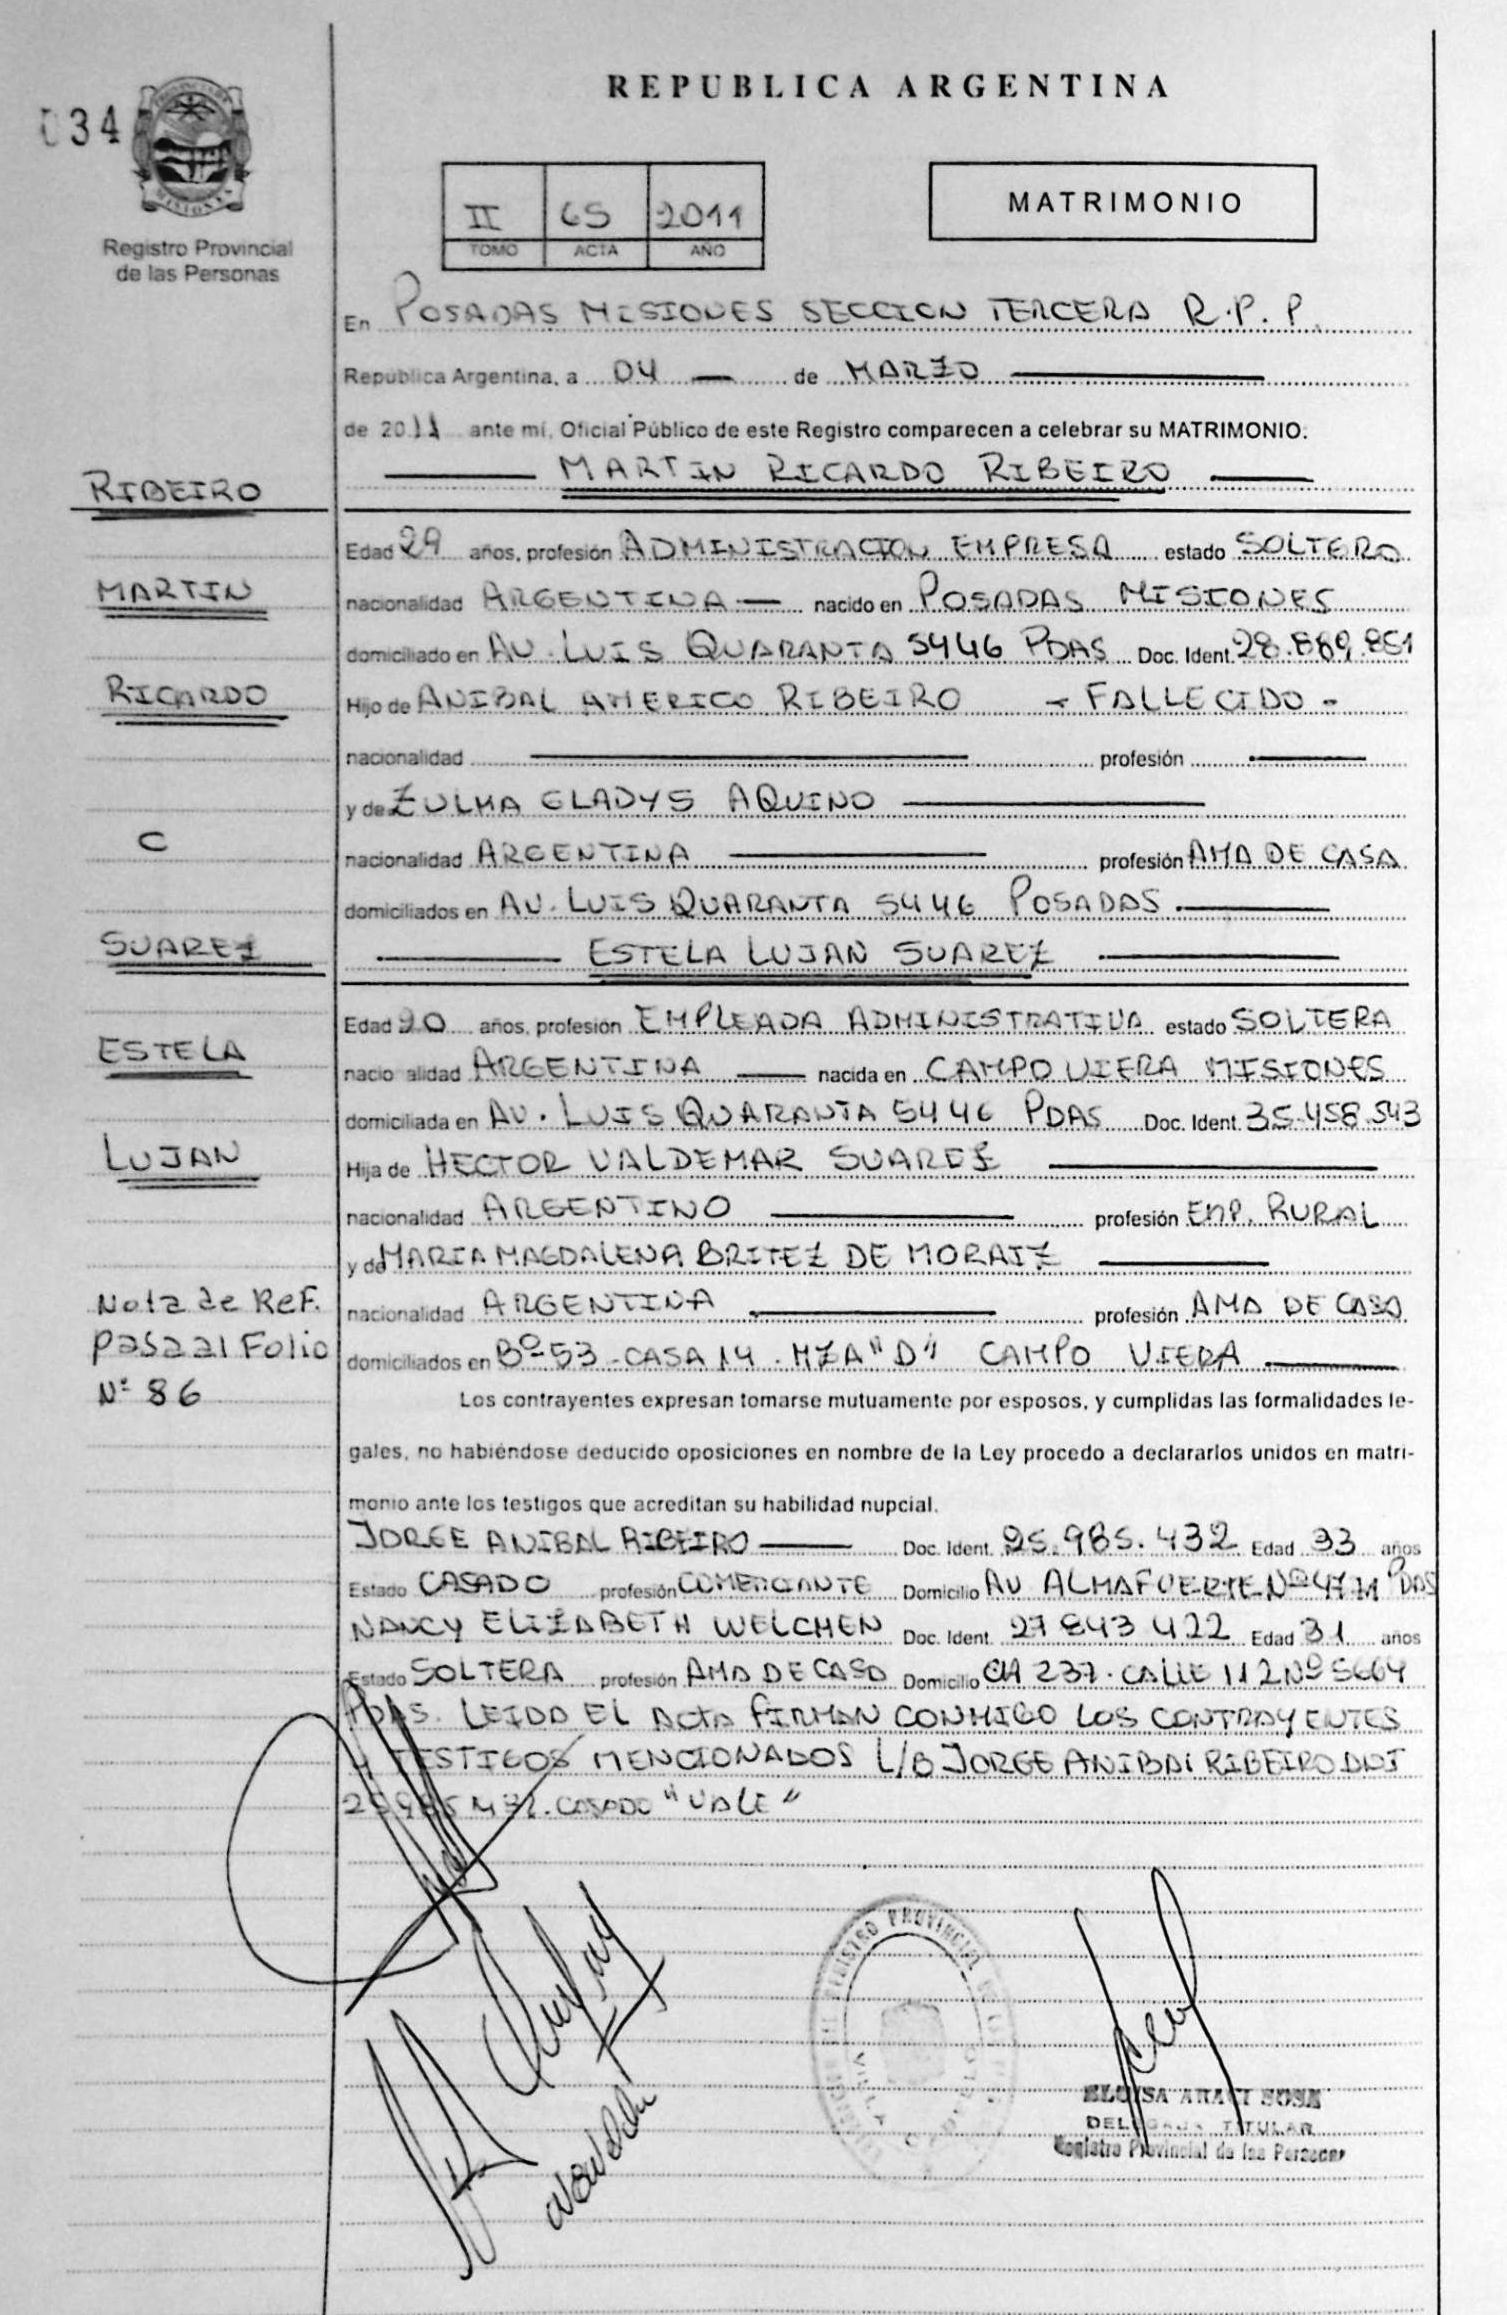 REPUBLICA ARGENTINA
034
Registro Provincial
de las Personas
II 65 2011
TOMO ACTA AÑO
MATRIMONIO
En POSADAS MISIONES SECCION TERCERA R.P.P.
Republica Argentina, a 04 — de MARZO
de 2011 ante mí, Oficial Público de este Registro comparecen a celebrar su MATRIMONIO.
MARTIN RICARDO RIBEIRO
RIBEIRO
Edad 29 años, profesión ADMINISTRACION EMPRESA estado SOLTERO
MARTIN
nacionalidad ARGENTINA — nacido en POSADAS MISIONES
domiciliado en AV. LUIS QUARANTA 5446 PDAS Doc. Ident. 28.889.851
RICARDO
Hijo de ANIBAL AMERICO RIBEIRO - FALLECIDO -
nacionalidad profesión
y de ZULMA GLADYS AQUINO
C
nacionalidad ARGENTINA profesión AMA DE CASA
domiciliados en AV. LUIS QUARANTA 5446 POSADAS
SUAREZ
ESTELA LUJAN SUAREZ
Edad 20 años, profesión EMPLEADA ADMINISTRATIVA estado SOLTERA
ESTELA
nacionalidad ARGENTINA — nacida en CAMPO VIERA MISIONES
domiciliada en AV. LUIS QUARANTA 5446 PDAS Doc. Ident. 35.458.543
LUJAN
Hija de HECTOR VALDEMAR SUAREZ
nacionalidad ARGENTINO profesión EMP. RURAL
y de MARIA MAGDALENA BRITEZ DE MORAIZ
Nota de Ref.
pasa al Folio
Nº 86
nacionalidad ARGENTINA profesión AMA DE CASA
domiciliados en Bº 53 - CASA 14 - MZA "D" CAMPO VIERA
Los contrayentes expresan tomarse mutuamente por esposos, y cumplidas las formalidades le-
gales, no habiéndose deducido oposiciones en nombre de la Ley procedo a declararlos unidos en matri-
monio ante los testigos que acreditan su habilidad nupcial.
JORGE ANIBAL RIBEIRO Doc. Ident. 25.985.432 Edad 33 años
Estado CASADO profesión COMERCIANTE Domicilio AV ALMAFUERTE Nº 4771 PDAS
NANCY ELIZABETH WELCHEN Doc. Ident. 27 843 422 Edad 31 años
Estado SOLTERA profesión AMA DE CASA Domicilio CH 237 - CALLE 112 Nº 5664
PDAS. LEIDA EL ACTA FIRMAN CONMIGO LOS CONTRAYENTES
Y TESTIGOS MENCIONADOS L/B JORGE ANIBAL RIBEIRO DNI
25985432. CASADO "VALE"
REGISTRO PROVINCIAL DE LAS
ELOISA ARACI SOSA
DELEGADA TITULAR
Registro Provincial de las Personas